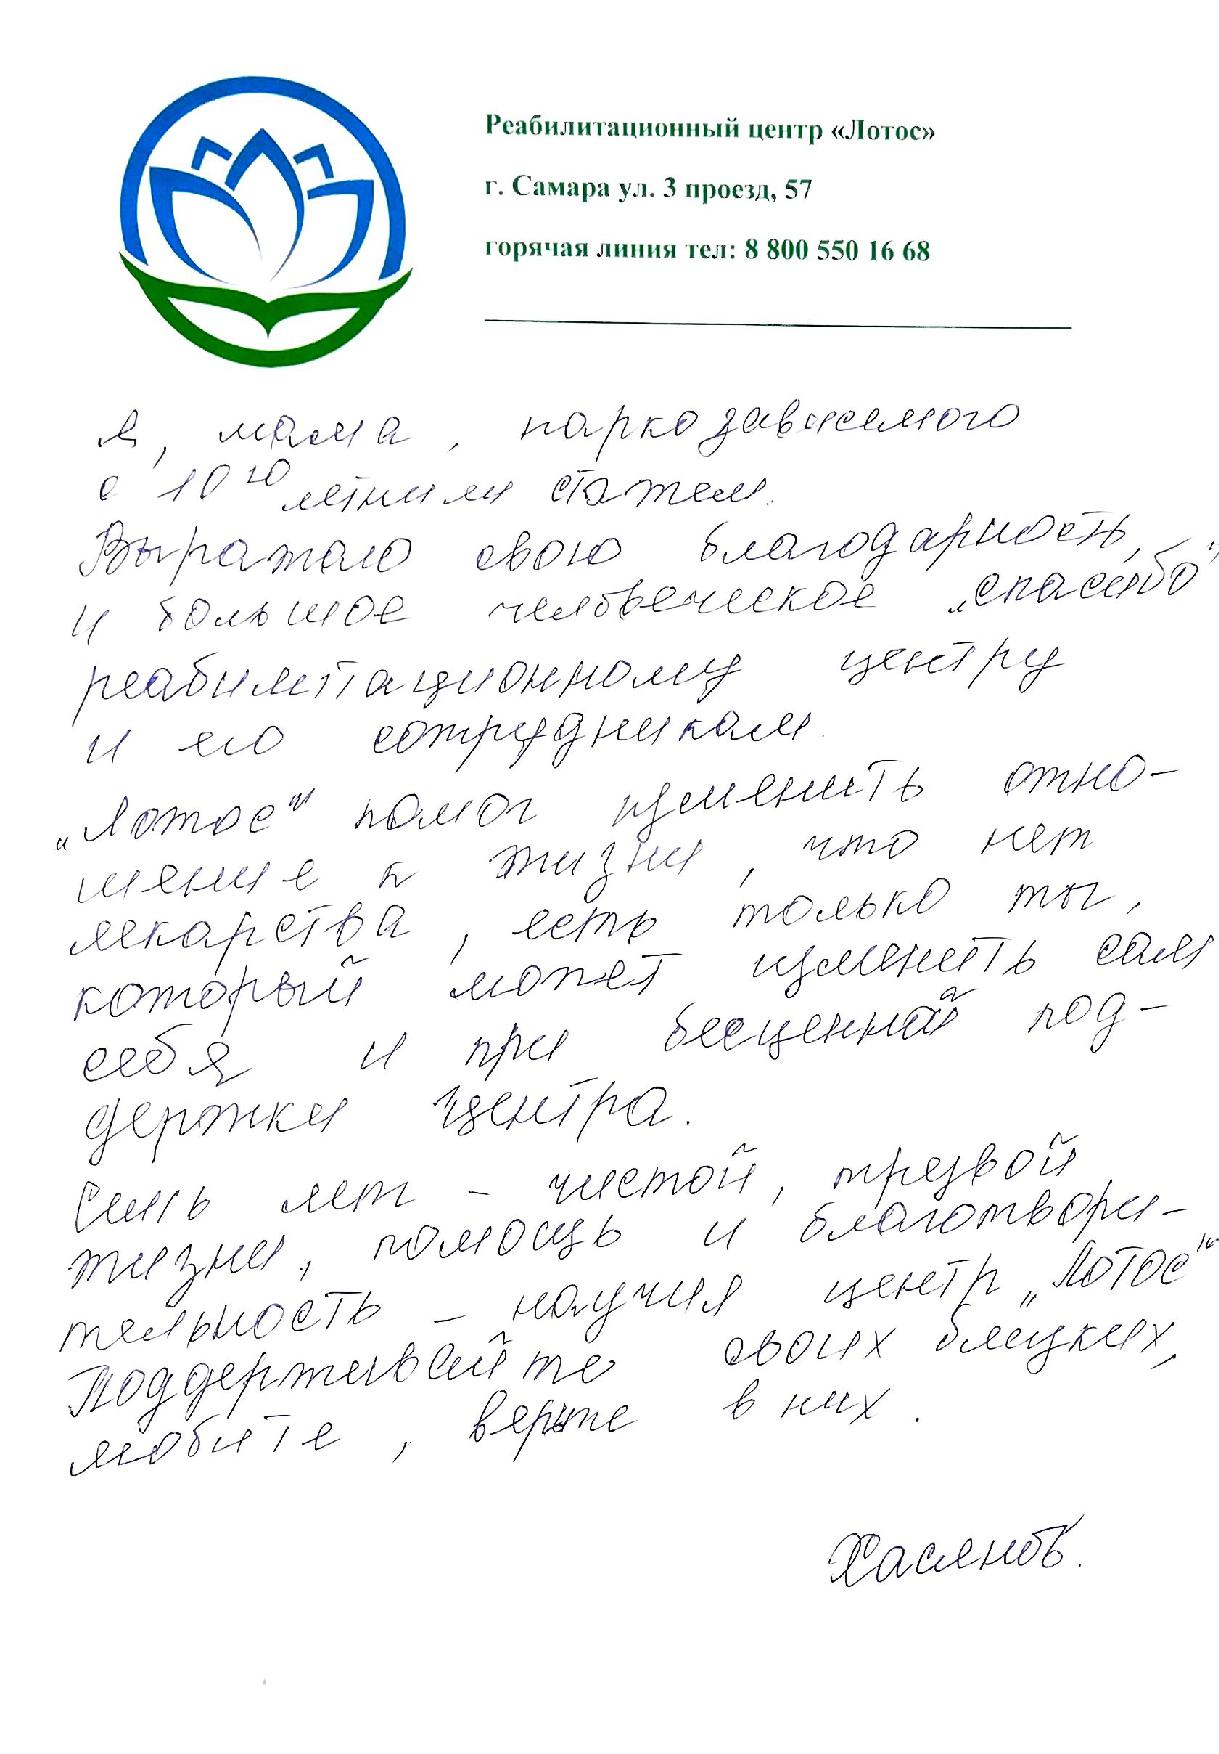 Реабилитационный центр «Лотос»
г. Самара ул. 3 проезд, 57
горячая линия тел: 8 800 550 16 68
Я, мама, наркозависимого
с 10 ю летним стажем.
Выражаю свою благодарность,
и большое человеческое „спасибо"
реабилитационному центру
и его сотрудникам.
„Лотос" помог изменить отно-
шение к жизни, что нет
лекарства, есть только ты,
который может изменить сам
себя и при бесценной под-
держки центра.
Семь лет – чистой, трезвой
жизни, помощь и благотвори-
тельность – научил центр „Лотос"
Поддерживайте своих близких,
любите, верьте в них.